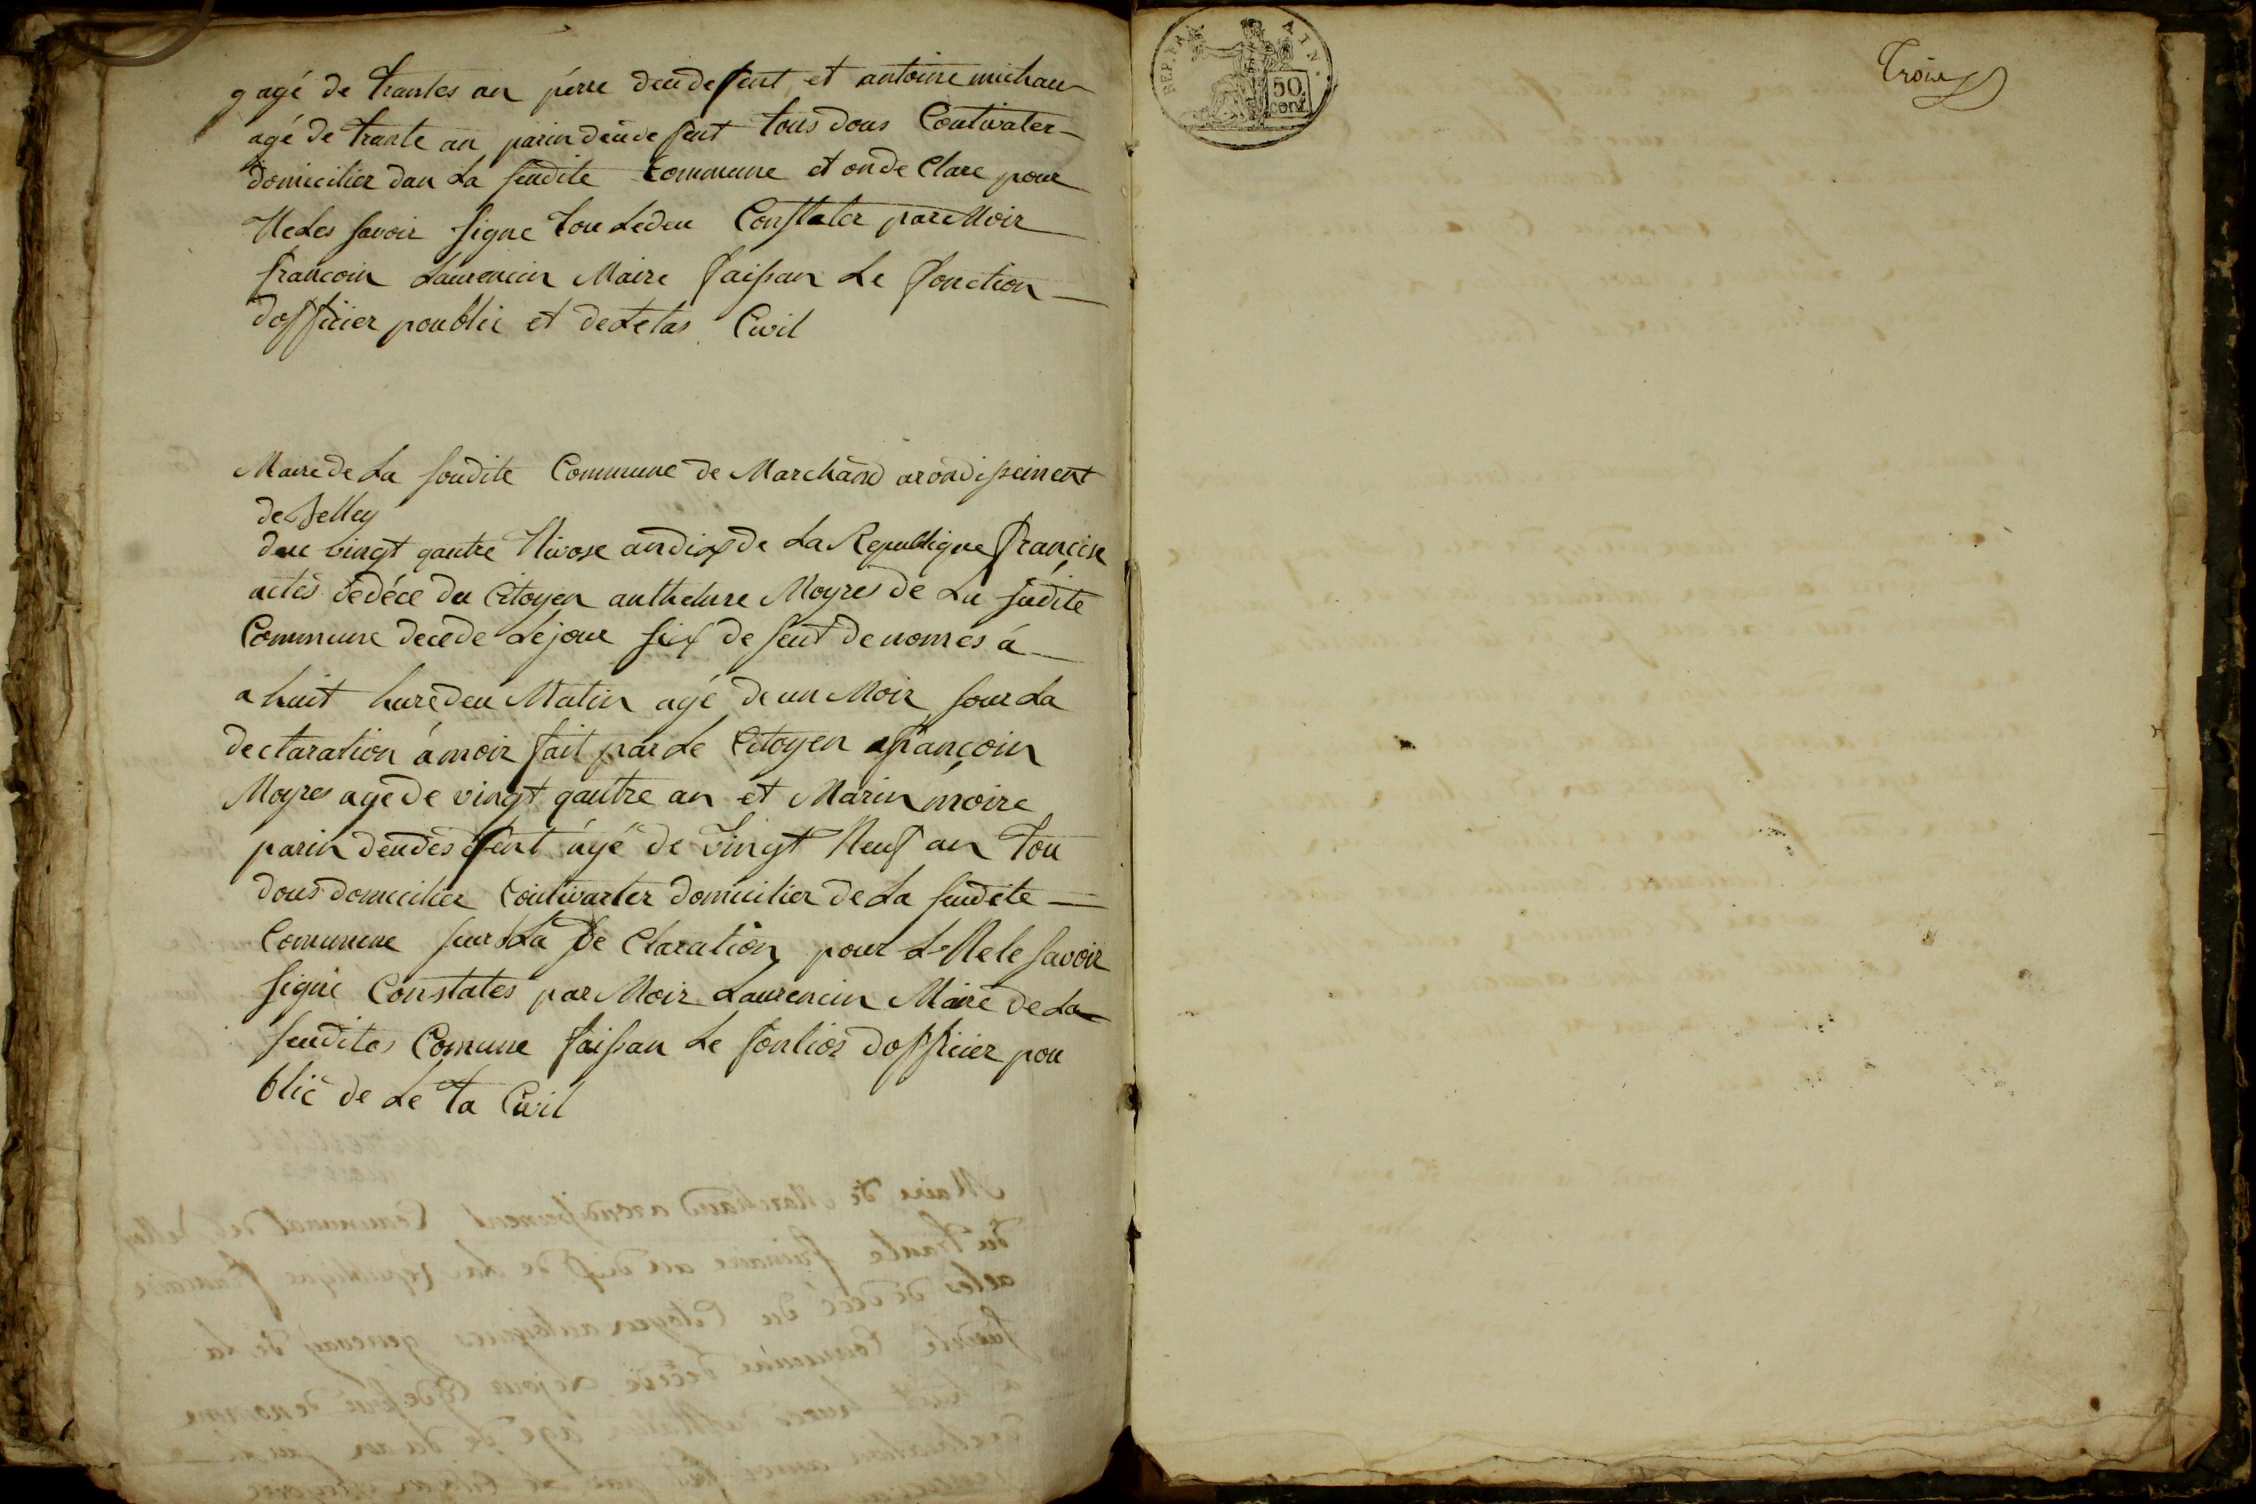 gagé de trantes an pérre deudefunt et antoine michau
agé de trante an parin deudefunt tous dous Coutivater
domicilier dan La sudite Commune et on de Clare pour
Nedes savoir signe tou Ledeu Constater pare Moir
francoin Laurencin Maire faisan Le fonction
dofficier poublic et deLetas Civil
Maire de La soudite Commune de Marchand arondiseinent
de Belley
deu vingt qautre Nivose an dix de La Republique françise
actes dedéce du Citoyen anthelme Moyres de La sudite
Commune decede Lejour six de seut denomes á
a huit hure deu Matin agé de un Moir sour La
declaration á moir fait par Le Citoyen françoin
Moyres agé de vingt qautre an et Marin moire
parin deudesefent ágé de vingt Neuf an tou
dous domicilier Coutivarter domicilier de La sudite
Commune sur La de Claration pour L Nele savoir
signé Constates par Moir Laurencin Maire de La
seudites Comune faisan Le fontion dofficier pou
blic de Le ta Civil
REP. FRA. AIN.
50
cent.
Troix